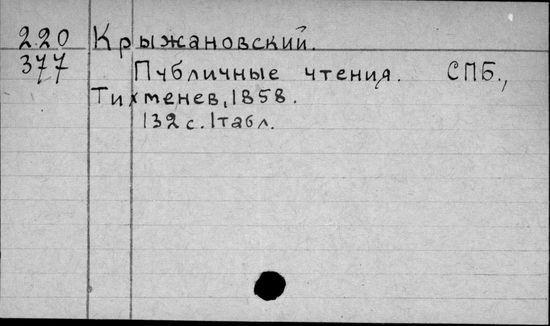 220 Крыжановский.
377 Публичные чтения. СПБ.,
Тихменев, 1858.
132 с. 1 табл.